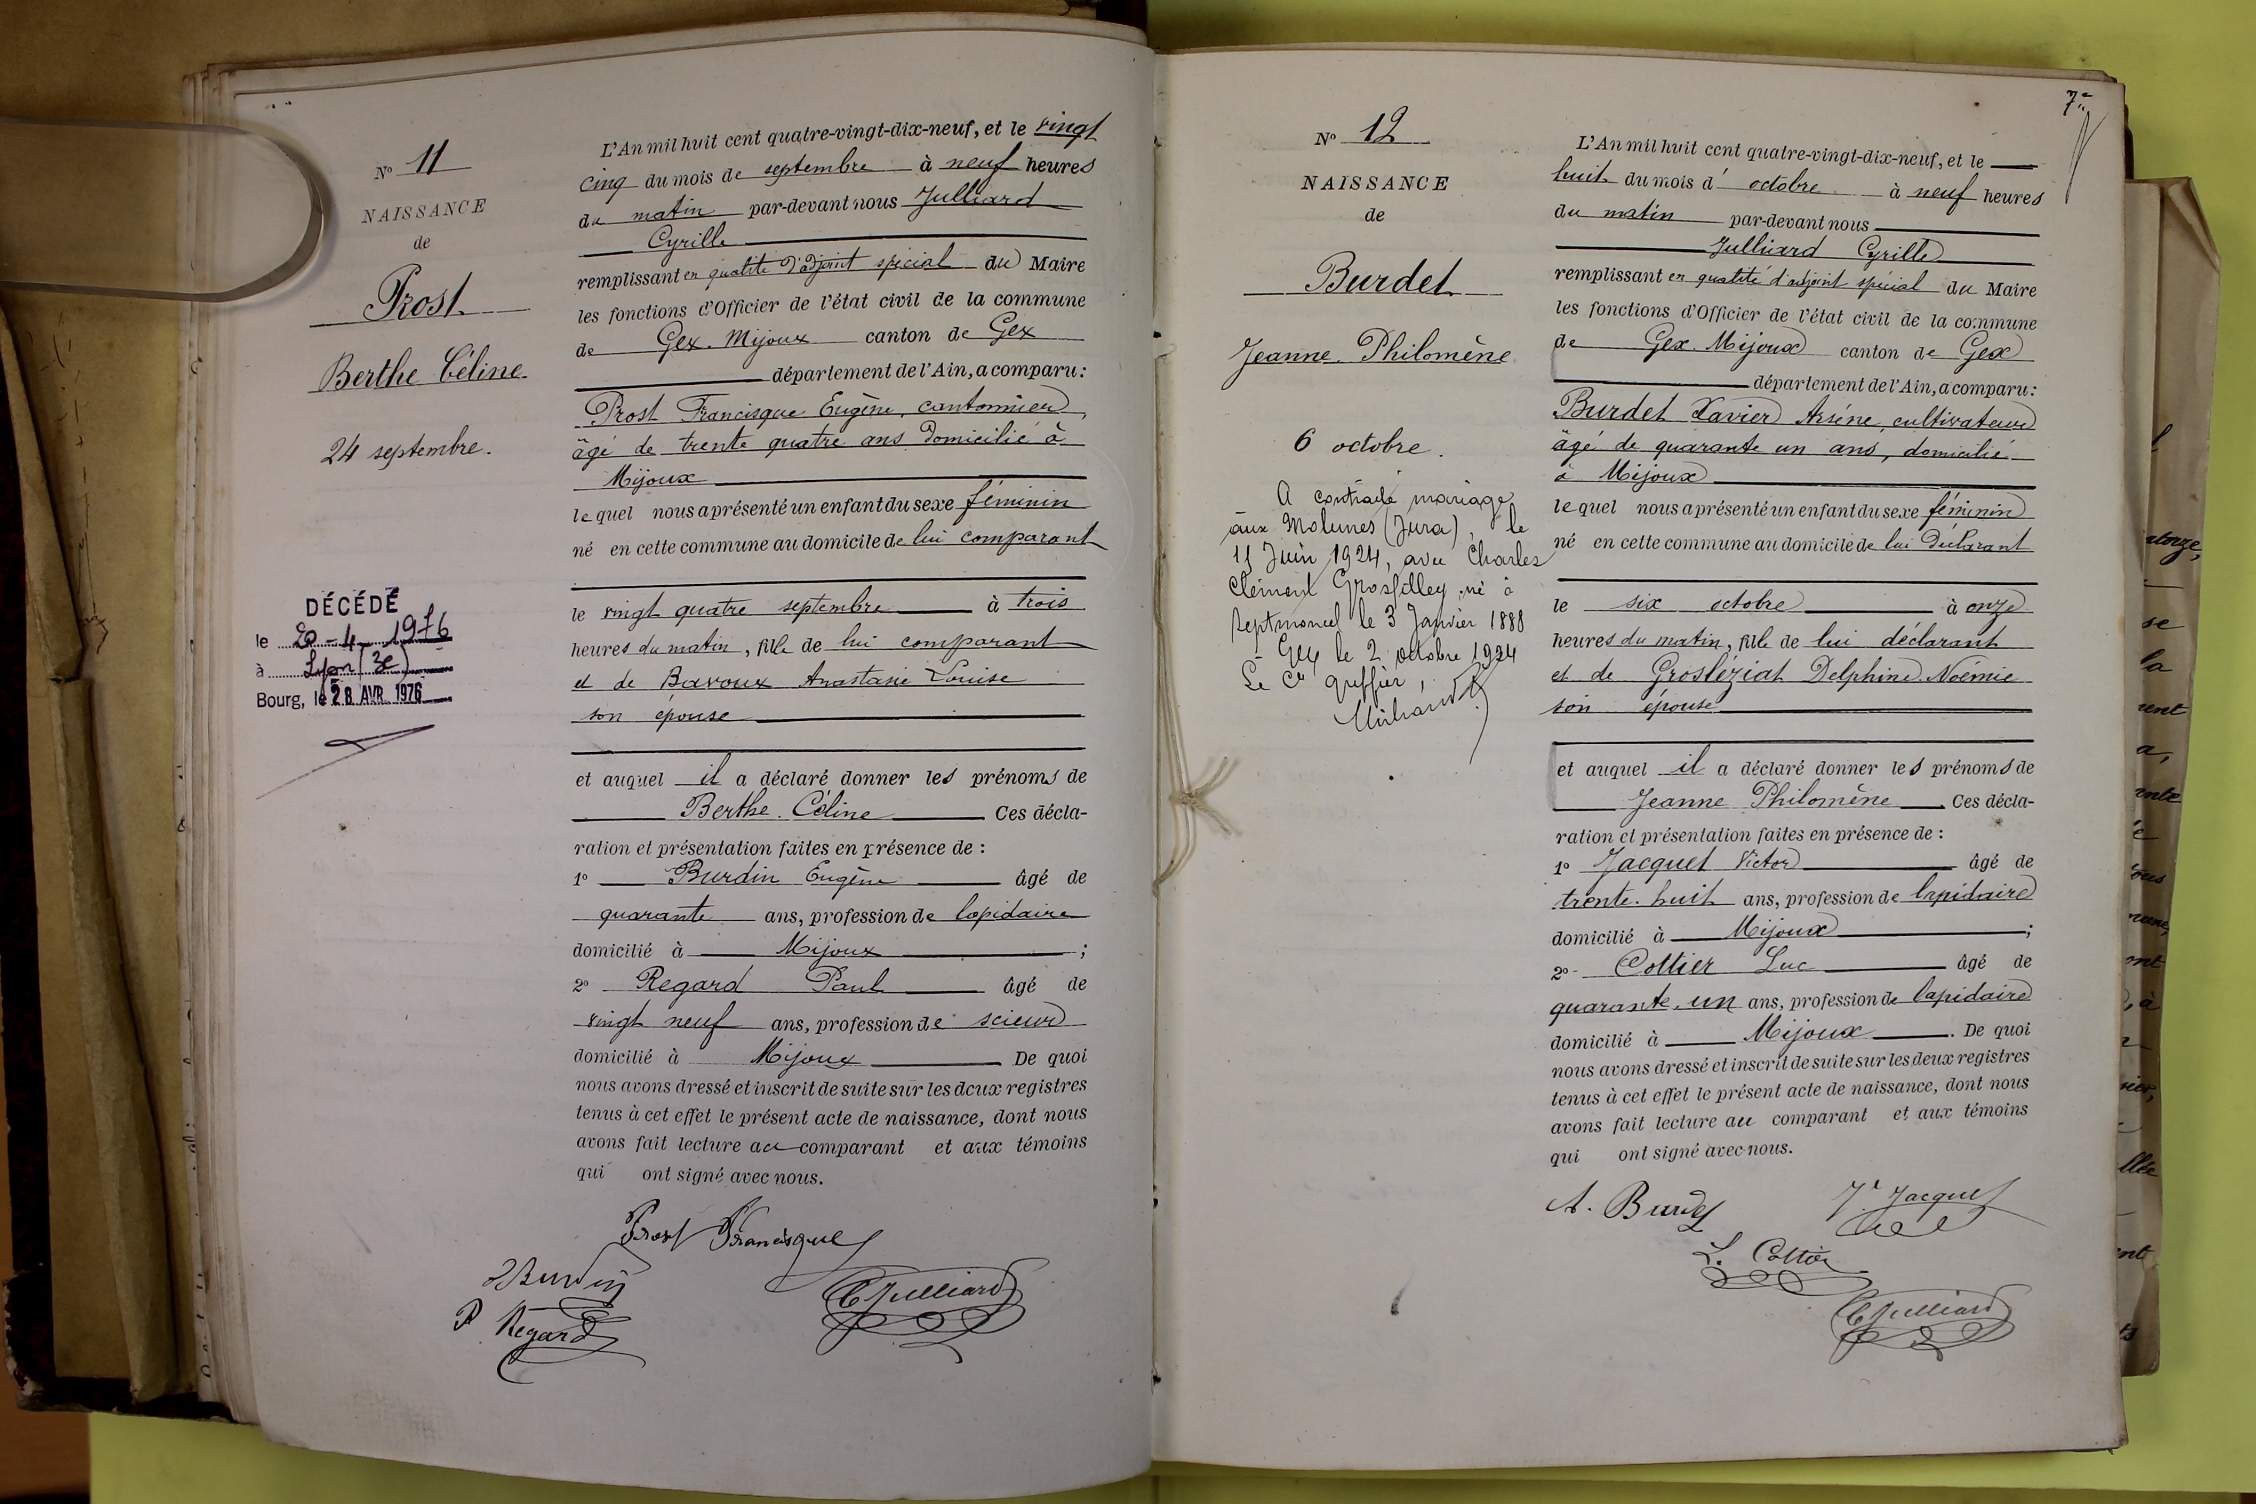 N° 11
NAISSANCE
de
Prost
Berthe Céline
24 septembre.
DÉCÉDÉ
le 20-4-1976
à Lyon (3e)
Bourg, le 28 AVR. 1976
L'An mil huit cent quatre-vingt-dix-neuf, et le vingt
cinq du mois de septembre à neuf heures
du matin par-devant nous Julliard
Cyrille
remplissant en qualité d'adjoint spécial du Maire
les fonctions d'Officier de l'état civil de la commune
de Gex-Mijoux canton de Gex
département de l'Ain, a comparu:
Prost Francisque Eugène, cantonnier,
âgé de trente quatre ans domicilié à
Mijoux
lequel nous a présenté un enfant du sexe féminin
né en cette commune au domicile de lui comparant
le vingt quatre septembre à trois
heures du matin, fille de lui comparant
et de Bavoux Anastasie Louise
son épouse
et auquel il a déclaré donner les prénoms de
Berthe Céline Ces décla-
ration et présentation faites en présence de :
1° Burdin Eugène âgé de
quarante ans, profession de lapidaire
domicilié à Mijoux ;
2° Regard Paul âgé de
vingt neuf ans, profession de scieur
domicilié à Mijoux De quoi
nous avons dressé et inscrit de suite sur les deux registres
tenus à cet effet le présent acte de naissance, dont nous
avons fait lecture au comparant et aux témoins
qui ont signé avec nous.
Prost Francisque
Burdin
P Regard
C Julliard
7
N° 12
NAISSANCE
de
Burdet
Jeanne Philomène
6 octobre.
A contracté mariage
aux Molunes (Jura), le
11 Juin 1924, avec Charles
Clément Grosfilley né à
Septmoncel le 3 Janvier 1888
Gex le 2 octobre 1924
Le Cis greffier,
L'An mil huit cent quatre-vingt-dix-neuf, et le
huit du mois d' octobre à neuf heures
du matin par-devant nous
Julliard Cyrille
remplissant en qualité d'adjoint spécial du Maire
les fonctions d'Officier de l'état civil de la commune
de Gex-Mijoux canton de Gex
département de l'Ain, a comparu:
Burdet Xavier Arsène, cultivateur
âgé de quarante un ans, domicilié
à Mijoux
lequel nous a présenté un enfant du sexe féminin
né en cette commune au domicile de lui déclarant
le six octobre à onze
heures du matin, fille de lui déclarant
et de Grosléziat Delphine Noémie
son épouse
et auquel il a déclaré donner les prénoms de
Jeanne Philomène Ces décla-
ration et présentation faites en présence de :
1° Jacquet Victor âgé de
trente-huit ans, profession de lapidaire
domicilié à Mijoux ;
2° Cottier Luc âgé de
quarante un ans, profession de lapidaire
domicilié à Mijoux . De quoi
nous avons dressé et inscrit de suite sur les deux registres
tenus à cet effet le présent acte de naissance, dont nous
avons fait lecture au comparant et aux témoins
qui ont signé avec nous.
A. Burdet
Jacquet
L. Cottier
C Julliard